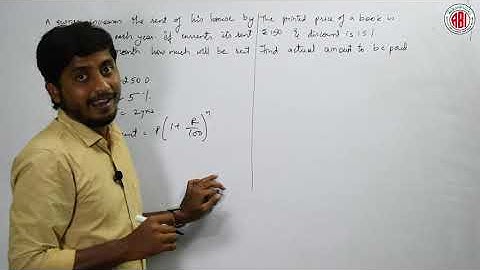 A increases the rent of his house by
each year. If currents its rent
month how much will be rent
2500
5%
= 2yrs
= P(1+ R/100)^n
The printed price of a book is
₹150 & discount is 15%
Find actual amount to be paid
ABI